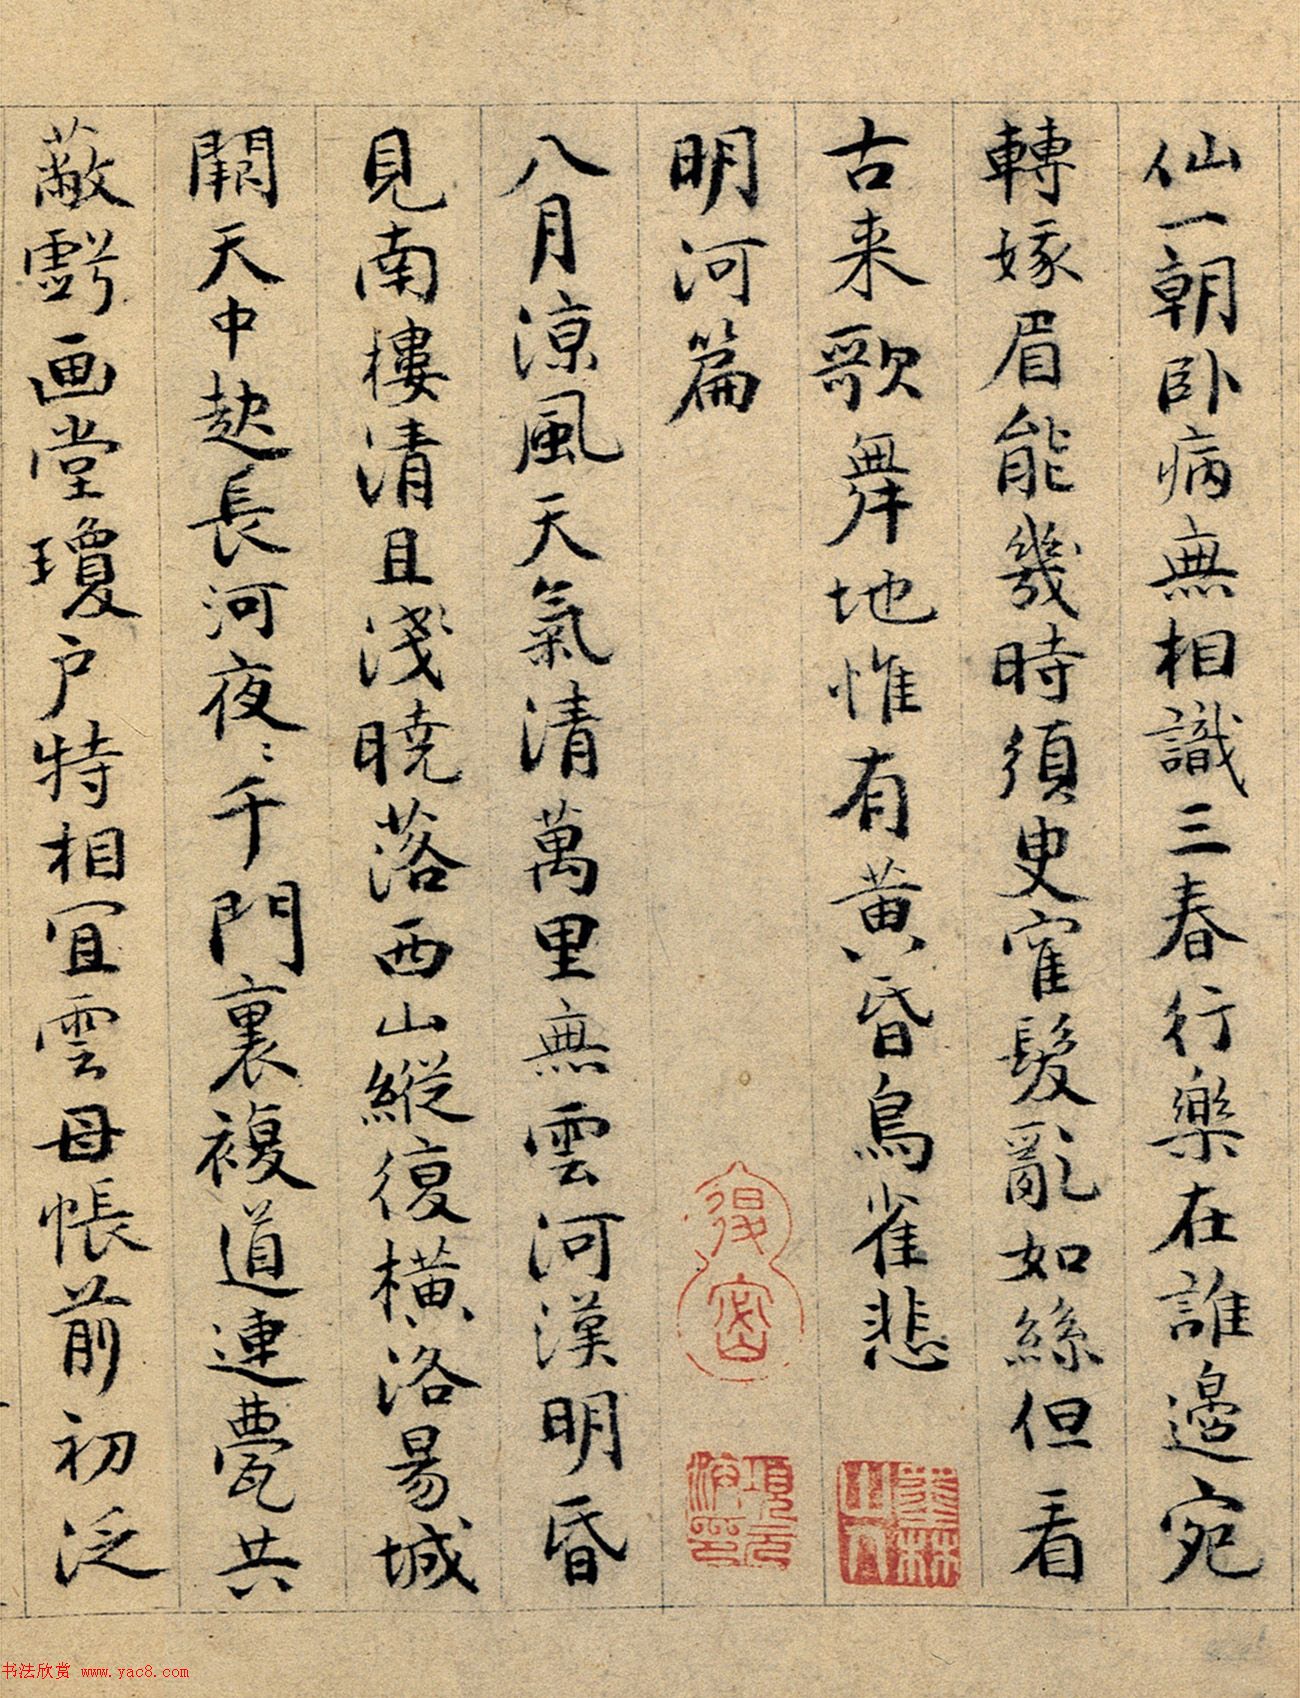 仙一朝卧病無相識三春行樂在誰邉宛
轉娥眉能幾時須臾寉髮亂如絲但看
古来歌舞地惟有黄昏鳥雀悲
明河篇
八月涼風天氣清萬里無雲河漢明昏
見南樓清且淺曉落西山縱復橫洛昜城
闕天中起長河夜〻千門裏複道連甍共
蔽虧画堂瓊户特相宜雲母帳前初泛
項元汴印
书法欣赏 www.yac8.com